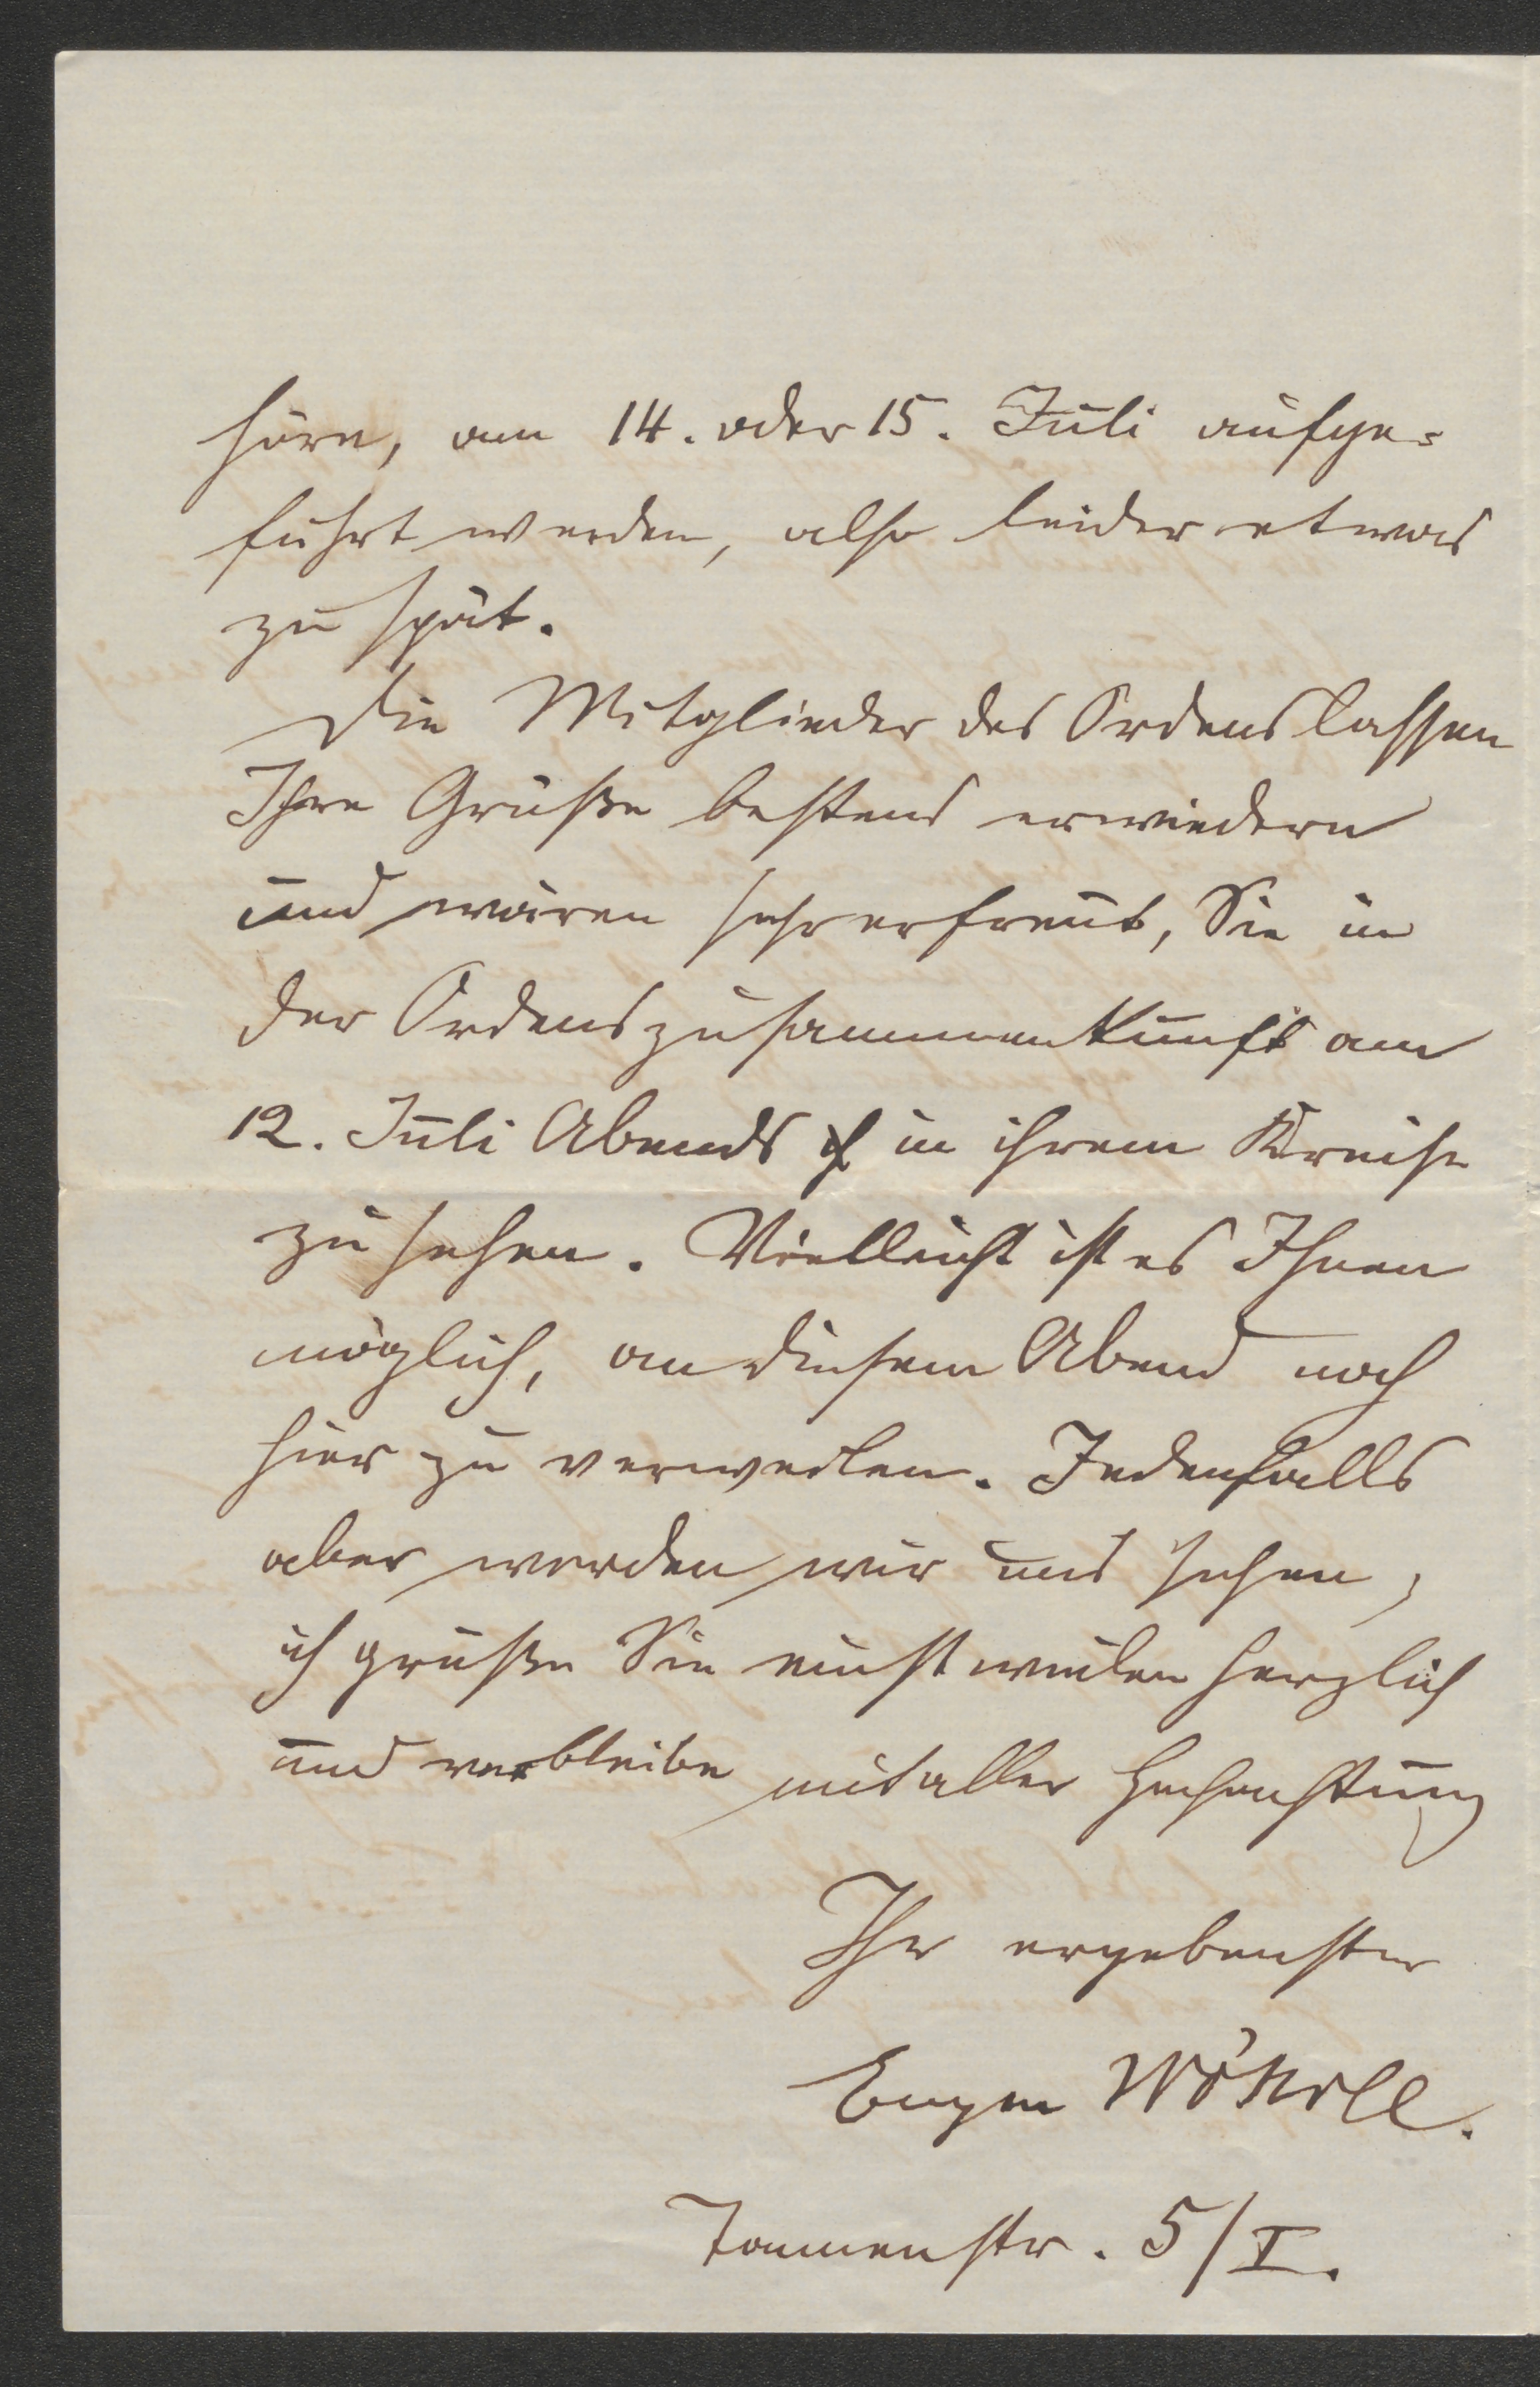 höre, am 14. oder 15. Juli aufge=
führt werden, also leider etwas
zu spät.
Die Mitglieder des Ordens lassen
Ihre Grüße bestens erwiedern
und wären sehr erfreut, Sie in
der Ordenszusammenkunft am
12. Juli Abends in ihrem Kreise
zu sehen. Vielleicht ist es Ihnen
möglich, an diesem Abend noch
hier zu verweilen. Jedenfalls
aber werden wir uns sehen,
ich grüße Sie einstweilen herzlich
und verbleibe mit aller Hochachtung
Ihr ergebenster
Eugen Wöhrle.
Tannenstr. 5/I.